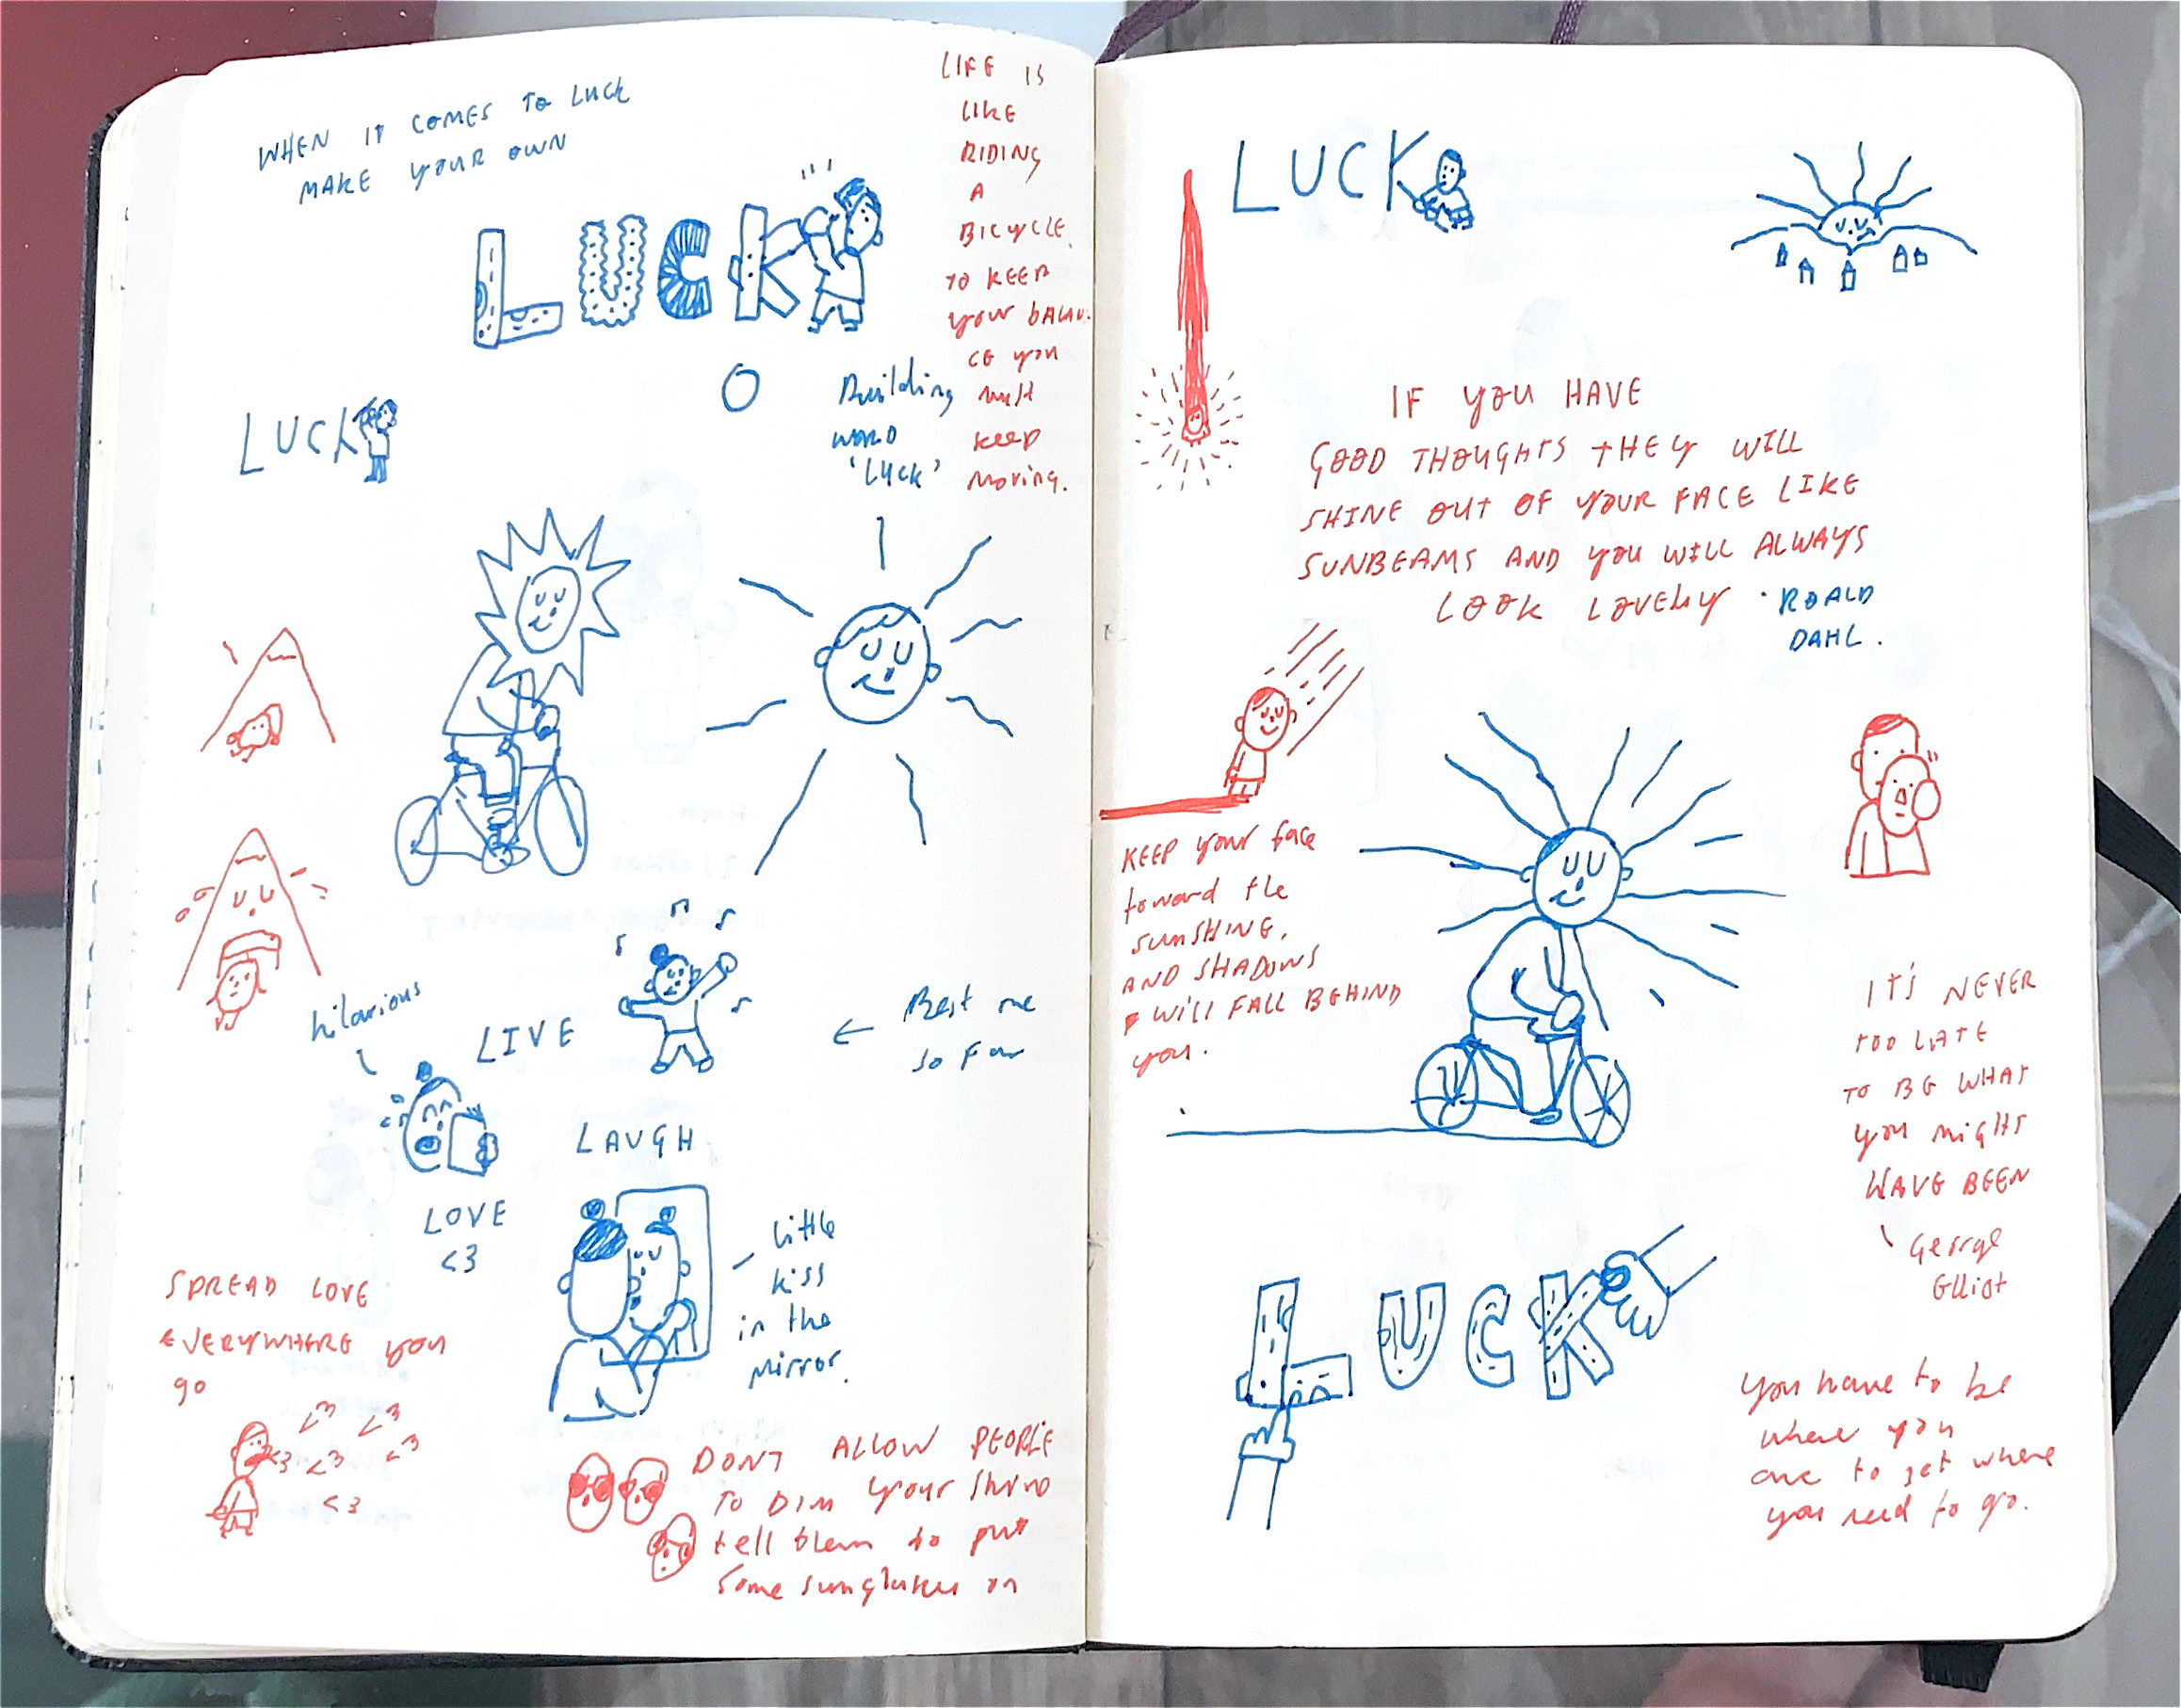 WHEN IT COMES TO LUCK
MAKE YOUR OWN
LUCK
LIFE IS
LIKE
RIDING
A
BICYCLE.
TO KEEP
your bALAN.
CE you
must
KEEP
moving.
Building
WORD
'LUCK'
LUCK
hilarious
LIVE
← Best me
so far
LAUGH
LOVE
<3
little
kiss
in the
mirror.
SPREAD LOVE
EVERYWHERE you
go
<3 <3
<3 <3 <3
<3
DON'T ALLOW PEOPLE
TO DIM your shine
tell them to put
some sunglasses on
LUCK
IF you HAVE
GOOD THOUGHTS tHEy WILL
SHINE OUt OF YOUR FACE LIKE
SUNBEAMS AND you WILL ALWAYS
LOOK LOVELY · ROALD
DAHL.
KEEP your face
toward the
SUNSHINE,
AND SHADOWS
WILL FALL BEHIND
you.
IT'S NEVER
TOO LATE
TO BE WHAT
you MIGHT
HAVE BEEN
George
Elliot
LUCK
you have to be
where you
are to get where
you need to go.